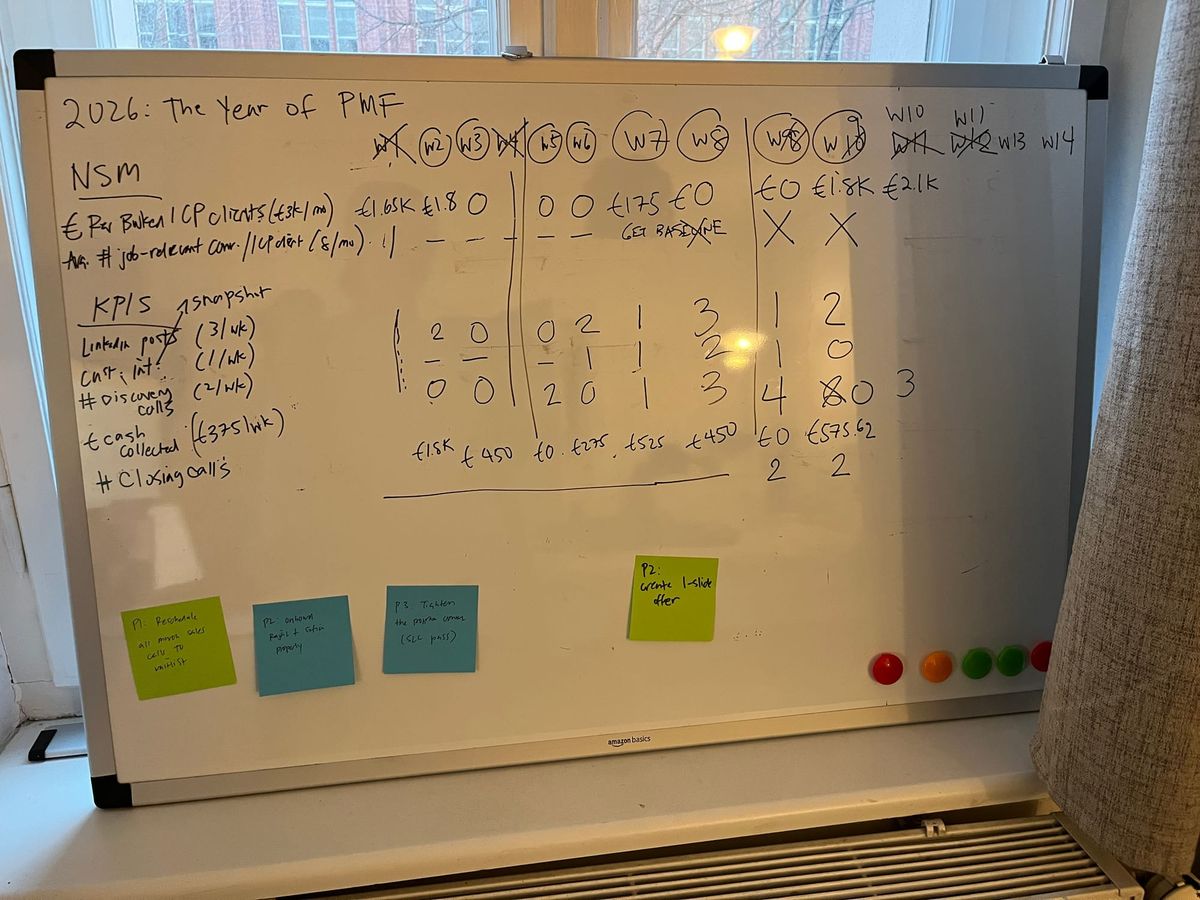 2026: The Year of PMF
W10 W11
W1 W2 W3 W4 W5 W6 W7 W8 W8 W9 W11 W12 W13 W14
NSM
€ Rev Booked ICP clients (€3k/mo) €1.65K €1.8 0 0 0 €175 €0 €0 €1.8K €2.1K
Ava. # job-relevant conv./ICP client (8/mo) — — — — — GET BASELINE X X
KPIs snapshot
LinkedIn posts (3/wk) 2 0 0 2 1 3 1 2
Cust. int. (1/wk) — — — 1 1 2 1 0
# Discovery calls (2/wk) 0 0 2 0 1 3 4 0 3
€ cash collected (€375/wk) €1.8K €450 €0 €275 €525 €450 €0 €575.62
# Closing calls 2 2
P1: Reschedule
all march sales
calls to
waitlist
P2: onboard
properly
P3: Tighten
the
(SLC pass)
P2:
create 1-slide
offer
amazon basics